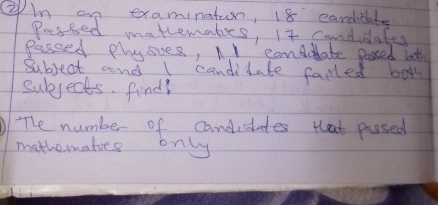 ② In an examination, 18 candidate
Passed mathematics, 17 candidates
Passed physics, 11 candidate passed both
Subject and 1 candidate failed both
Subjects. find:
The number of candidates that passed
mathematics only